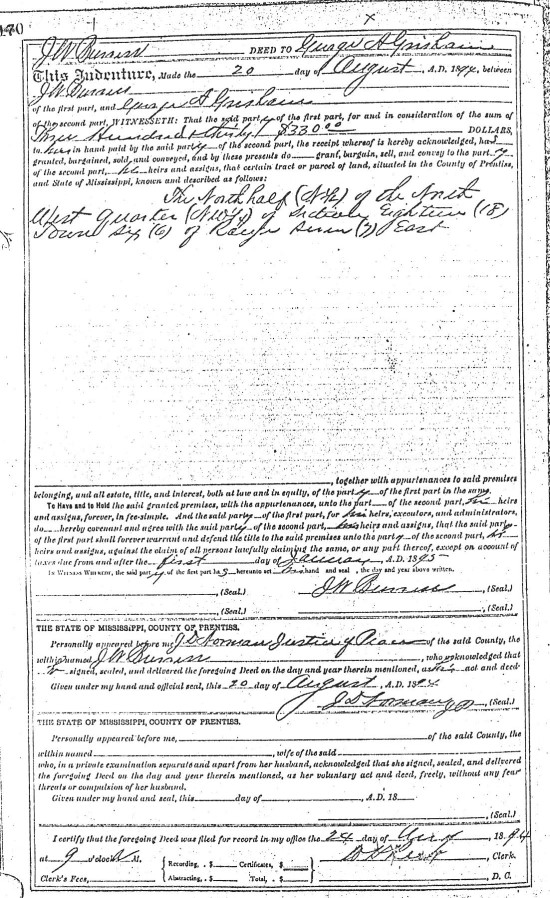 J W Burress DEED TO George A Grisham
This Indenture, Made the 20 day of August, A.D. 1894, between
J W Burress
of the first part, and George A Grisham
of the second part, WITNESSETH: That the said party of the first part, for and in consideration of the sum of
Three Hundred & thirty $330.00 DOLLARS,
to him in hand paid by the said party of the second part, the receipt whereof is hereby acknowledged, has
granted, bargained, sold, and conveyed, and by these presents do grant, bargain, sell, and convey to the party
of the second part, his heirs and assigns, that certain tract or parcel of land, situated in the County of Prentiss,
and State of Mississippi, known and described as follows:
The North half (N½) of the North
West quarter (NW¼) of Section Eighteen (18)
Town Six (6) of Range Seven (7) East
, together with appurtenances to said premises
belonging, and all estate, title, and interest, both at law and in equity, of the party of the first part in the same.
To Have and to Hold the said granted premises, with the appurtenances, unto the part of the second part, his heirs
and assigns, forever, in fee-simple. And the said party of the first part, for his heirs, executors, and administrators,
do hereby covenant and agree with the said party of the second part, his heirs and assigns, that the said party
of the first part shall forever warrant and defend the title to the said premises unto the party of the second part, his
heirs and assigns, against the claim of all persons lawfully claiming the same, or any part thereof, except on account of
taxes due from and after the first day of January, A.D. 1895
IN WITNESS WHEREOF, the said party of the first part has hereunto set his hand and seal, the day and year above written.
, (Seal.) J W Burress (Seal.)
, (Seal.) , (Seal.)
THE STATE OF MISSISSIPPI, COUNTY OF PRENTISS.
Personally appeared before me, J D Norman Justice of Peace of the said County, the
within named J W Burress, who acknowledged that
he signed, sealed, and delivered the foregoing Deed on the day and year therein mentioned, as his act and deed
Given under my hand and official seal, this 20 day of August, A.D. 1894
J D Norman JP, (Seal.)
THE STATE OF MISSISSIPPI, COUNTY OF PRENTISS.
Personally appeared before me, of the said County, the
within named , wife of the said
who, in a private examination separate and apart from her husband, acknowledged that she signed, sealed, and delivered
the foregoing Deed on the day and year therein mentioned, as her voluntary act and deed, freely, without any fear
threats or compulsion of her husband.
Given under my hand and seal, this day of , A.D. 18
, (Seal.)
I certify that the foregoing Deed was filed for record in my office the 24 day of Aug 1894
at 9 o'clock M. Recording, . $ Certificates, $ , Clerk.
Clerk's Fees, Abstracting, . $ Total, . $ , D. C.